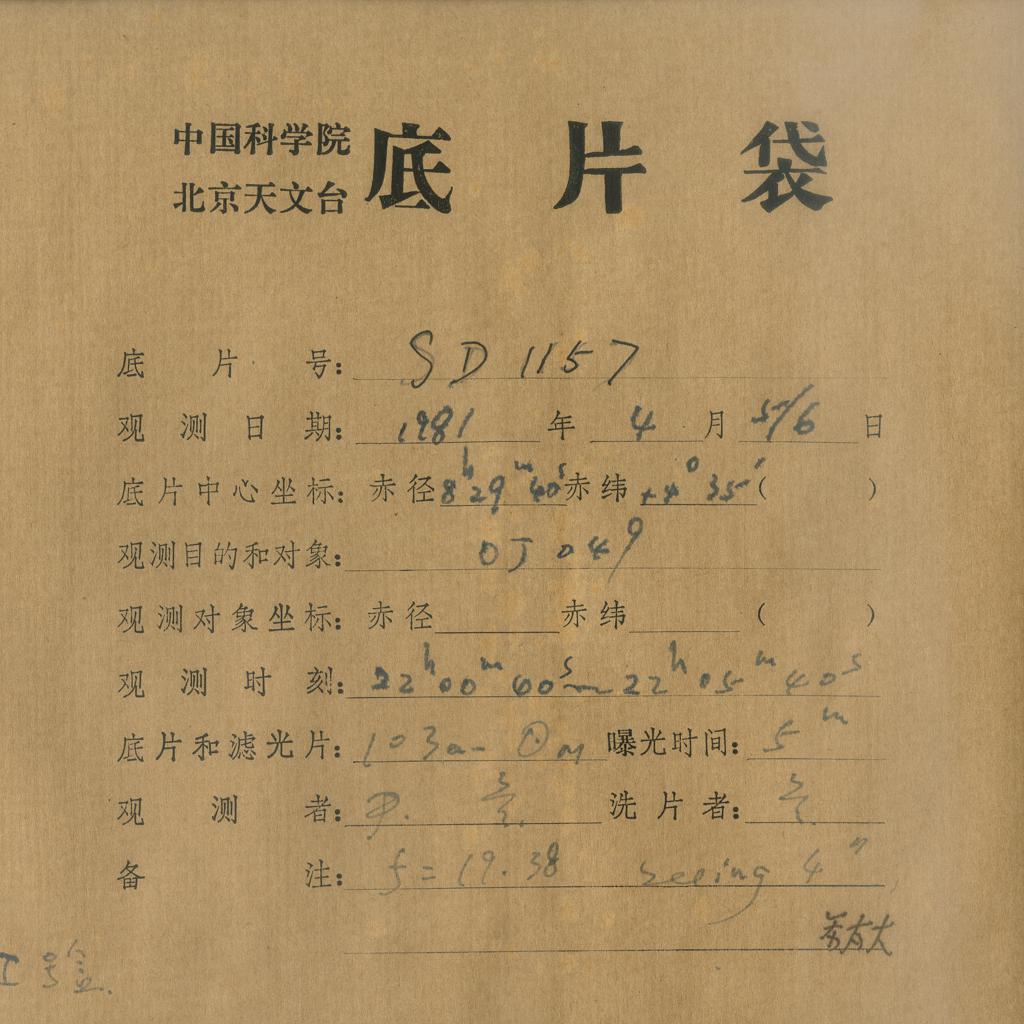 中国科学院
北京天文台 底片袋
底片号: SD 1157
观测日期: 1981 年 4 月 5/6 日
底片中心坐标: 赤径 8h29m40s 赤纬 +4°35′ ( )
观测目的和对象: OJ 049
观测对象坐标: 赤径 赤纬 ( )
观测时刻: 22h00m40s~22h05m40s
底片和滤光片: 103a- 曝光时间: 5m
观测者: 洗片者:
备注: f=19.38 seeing 4″
号盒